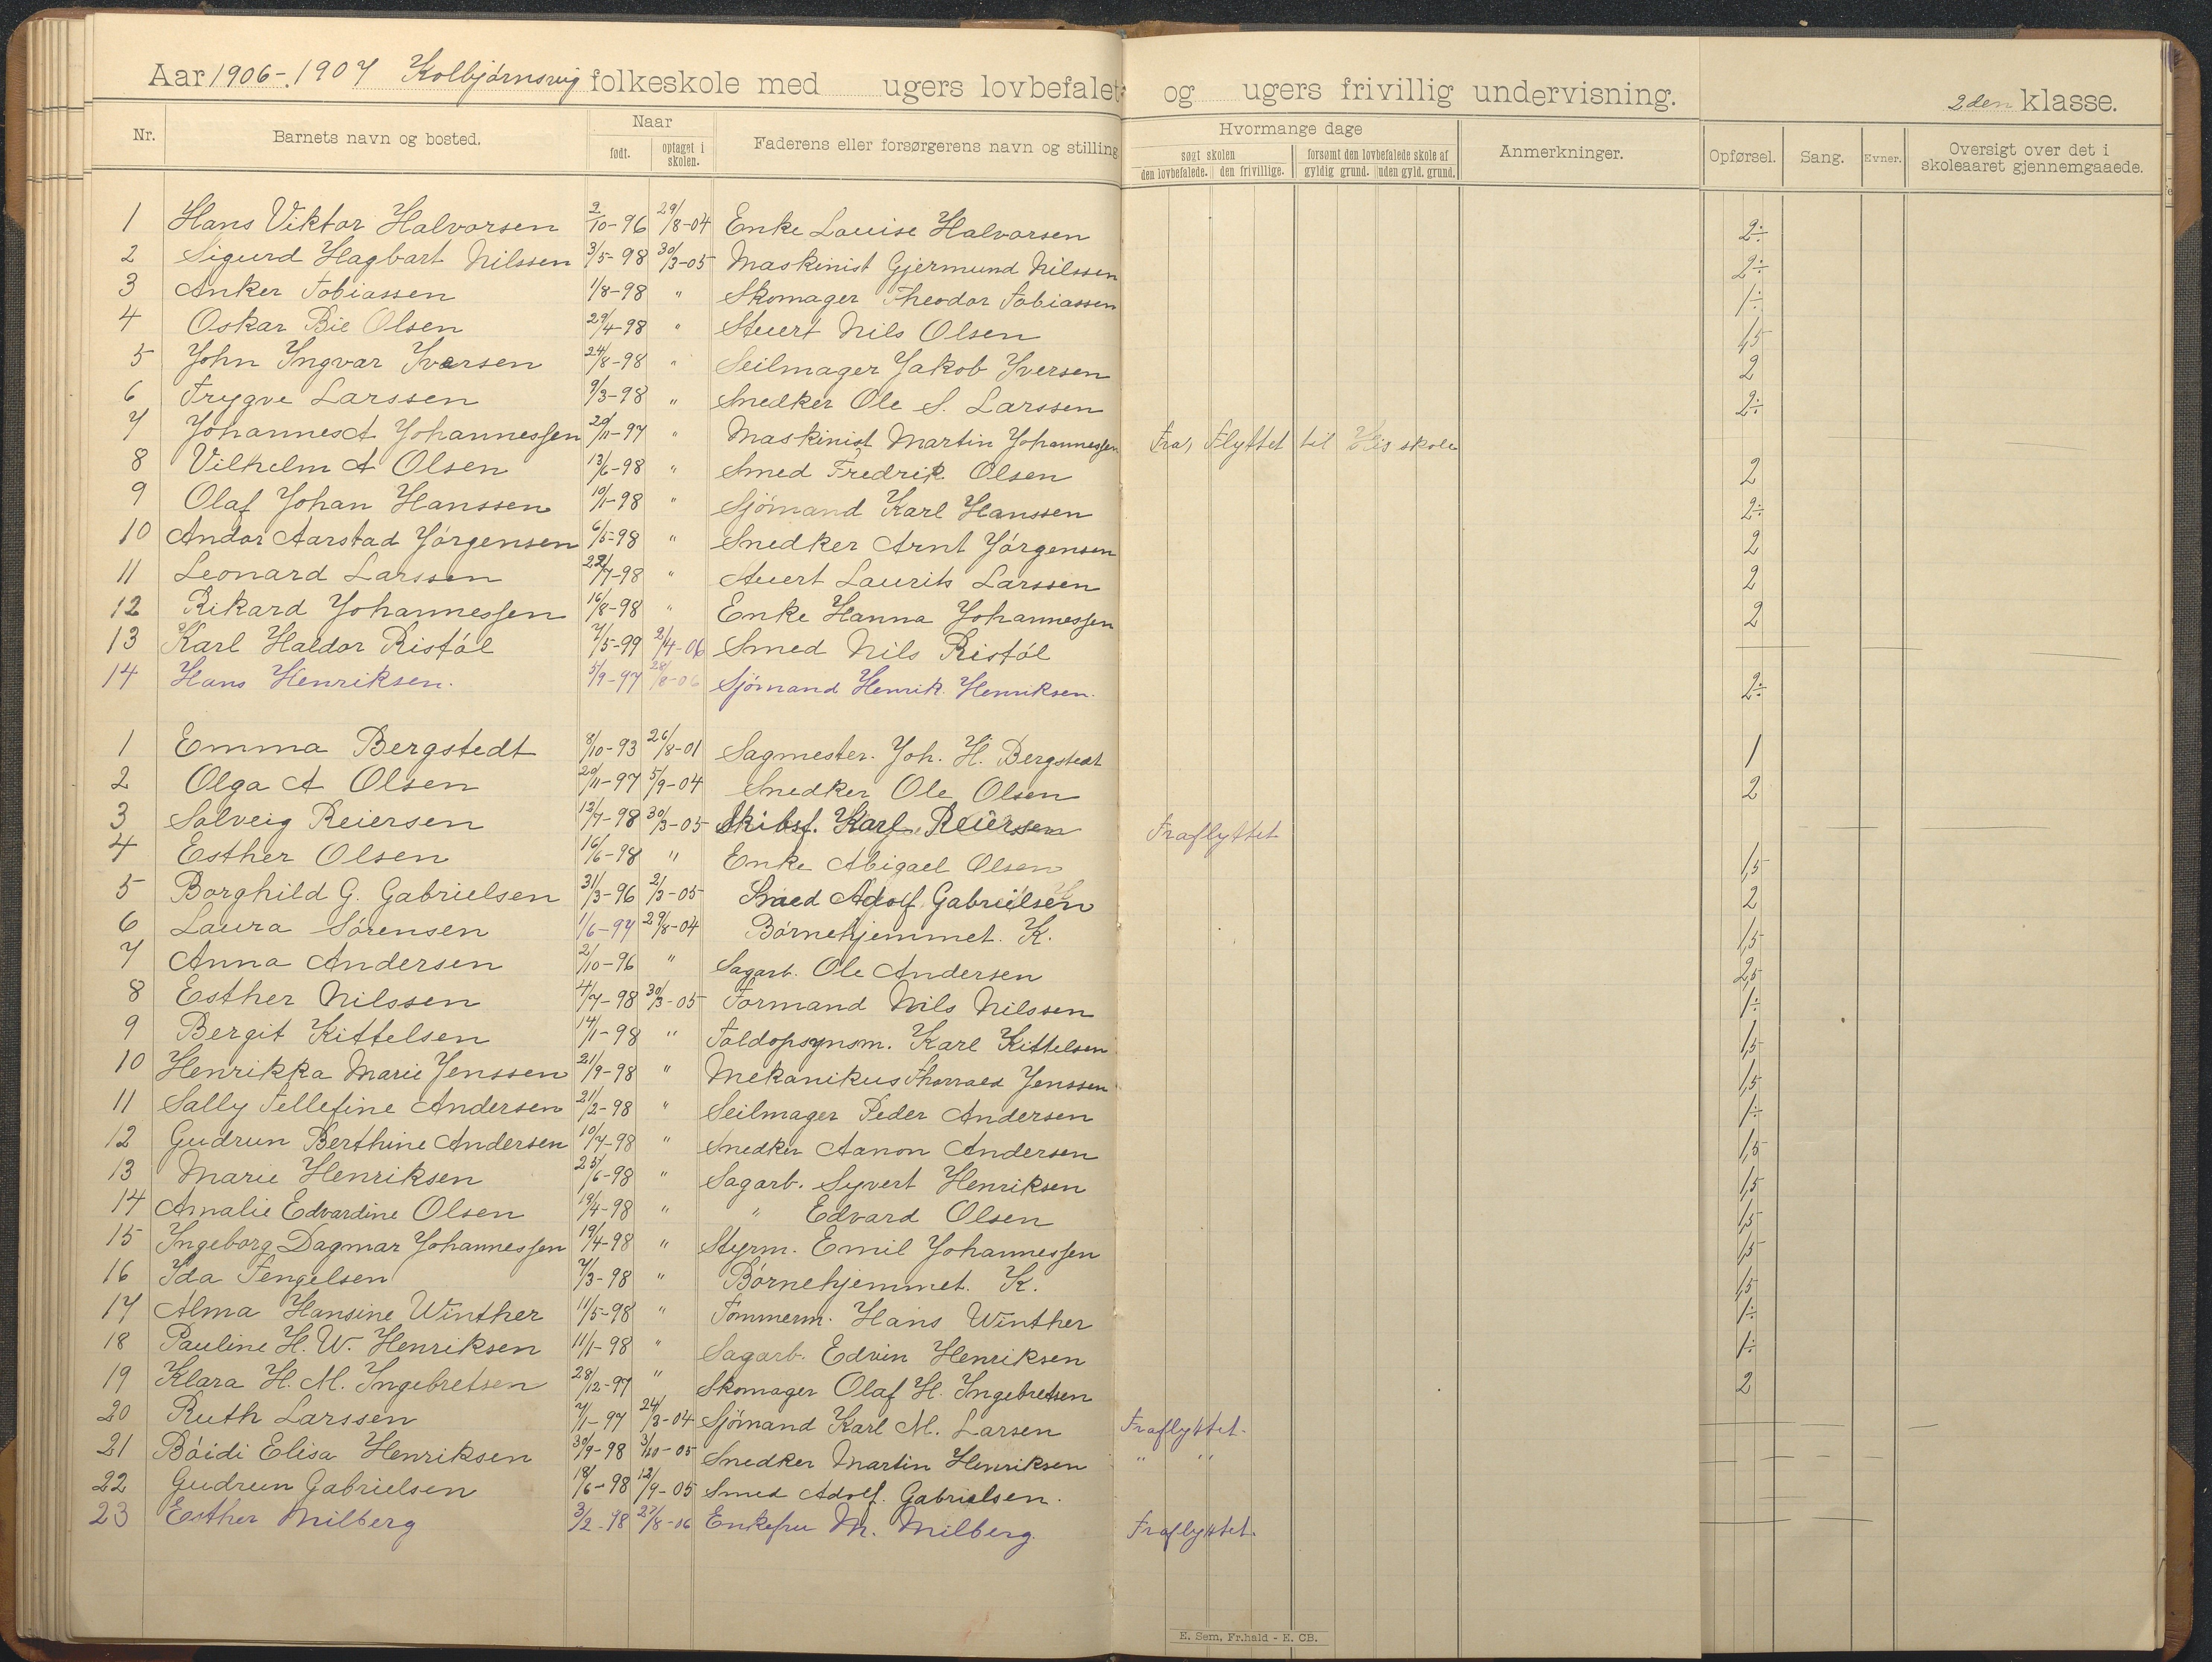 Aar 1906-1907 Kolbjørnsvig folkeskole med ugers lovbefalet og ugers frivillig undervisning. 2den klasse.
Nr. Barnets navn og bosted. Naar født. optaget i skolen. Faderens eller forsørgerens navn og stilling Hvormange dage søgt skolen den lovbefalede. den frivillige. forsømt den lovbefalede skole af gyldig grund. uden gyld. grund. Anmerkninger. Opførsel. Sang. Evner. Oversigt over det i skoleaaret gjennemgaaede.
1 Hans Viktor Halvorsen 2/10-96 29/8-04 Enke Louise Halvorsen 2÷
2 Sigurd Hagbart Nilssen 3/5-98 30/3-05 Maskinist Gjermund Nilssen 2÷
3 Anker Tobiassen 1/8-98 " Skomager Theodor Tobiassen 1÷
4 Oskar Bie Olsen 29/4-98 " Stuert Nils Olsen 1,5
5 John Ingvar Iversen 24/8-98 " Seilmager Jakob Iversen 2
6 Trygve Larssen 9/3-98 " Snedker Ole S. Larssen 2÷
7 Johannes A Johannessen 20/11-97 " Maskinist Martin Johannessen Fra, flyttet til His skole
8 Vilhelm A Olsen 13/6-98 " Smed Fredrik Olsen 2
9 Olaf Johan Hanssen 10/1-98 " Sjømand Karl Hanssen 2÷
10 Andor Aarstad Jørgensen 6/5-98 " Snedker Arnt Jørgensen 2
11 Leonard Larssen 22/7-98 " Stuert Laurits Larssen 2
12 Rikard Johannessen 16/8-98 " Enke Hanna Johannessen 2
13 Karl Haldor Ristøl 7/5-99 2/4-06 Smed Nils Ristøl
14 Hans Henriksen. 5/9-97 28/8-06 Sjømand Henrik Henriksen. 2÷
1 Emma Bergstedt 8/10-93 26/8-01 Sagmester. Joh. H. Bergstedt 1
2 Olga A Olsen 20/11-97 5/9-04 Snedker Ole Olsen 2
3 Solveig Reiersen 12/7-98 30/3-05 Skibsf. Karl Reiersen Fraflyttet
4 Esther Olsen 16/6-98 " Enke Abigael Olsen 1,5
5 Borghild G. Gabrielsen 31/3-96 2/3-05 Smed Adolf Gabrielsen 2
6 Laura Sørensen 1/6-97 29/8-04 Børnehjemmet. K. 1,5
7 Anna Andersen 2/10-96 " Sagarb. Ole Andersen 2,5
8 Esther Nilssen 4/7-98 30/3-05 Formand Nils Nilssen 1÷
9 Bergit Kittelsen 14/1-98 " Toldopsynsm. Karl Kittelsen 1,5
10 Henrikka Marie Jenssen 21/9-98 " Mekanikus Thorvald Jenssen 1,5
11 Sally Tellefine Andersen 21/2-98 " Seilmager Peder Andersen 1÷
12 Gudrun Berthine Andersen 10/7-98 " Snedker Aanon Andersen 1,5
13 Marie Henriksen 25/6-98 " Sagarb. Syvert Henriksen 1,5
14 Amalie Edvardine Olsen 19/4-98 " " Edvard Olsen 1,5
15 Ingeborg Dagmar Johannessen 19/4-98 " Styrm. Emil Johannessen 1,5
16 Ida Tengelsen 7/3-98 " Børnehjemmet. K. 1,5
17 Alma Hansine Winther 11/5-98 " Tømmerm. Hans Winther 1÷
18 Pauline H. W. Henriksen 11/1-98 " Sagarb. Edvin Henriksen 1÷
19 Klara H. M. Ingebretsen 28/12-97 " Skomager Olaf H. Ingebretsen 2
20 Ruth Larssen 7/1-97 24/3-04 Sjømand Karl M. Larsen Fraflyttet.
21 Bøidi Elisa Henriksen 30/9-98 3/10-05 Snedker Martin Henriksen " "
22 Gudrun Gabrielsen 18/6-98 12/9-05 Smed Adolf. Gabrielsen.
23 Esther Milberg 3/2-98 27/8-06 Enkefru M. Milberg. Fraflyttet.
E. Sem, Fr.hald - E. CB.